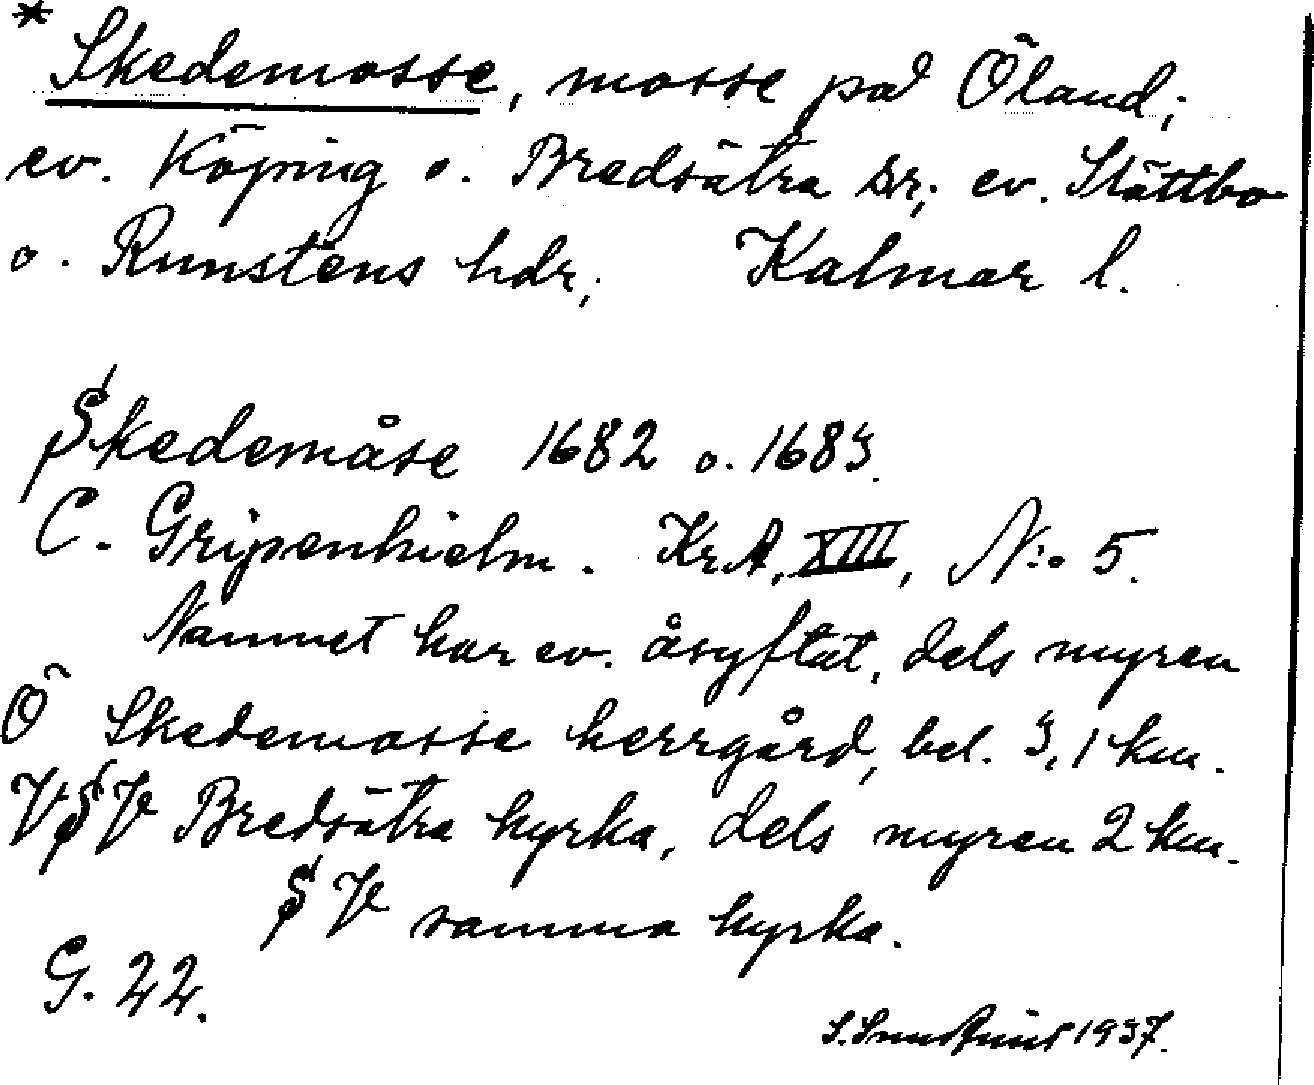 * Skedemosse, mosse på Öland;
ev. Köping o. Bredsätra snr; ev. Slättbo
o. Runstens hdr; Kalmar l.
Skedemåse 1682 o. 1683.
C. Gripenhielm. KrA, XIII, N:o 5.
Namnet har ev. åsyftat, dels myren
Ö Skedemosse herrgård, bel. 3,1 km.
VSV Bredsätra kyrka, dels myren 2 km.
SV samma kyrka.
G. 22.
1937.